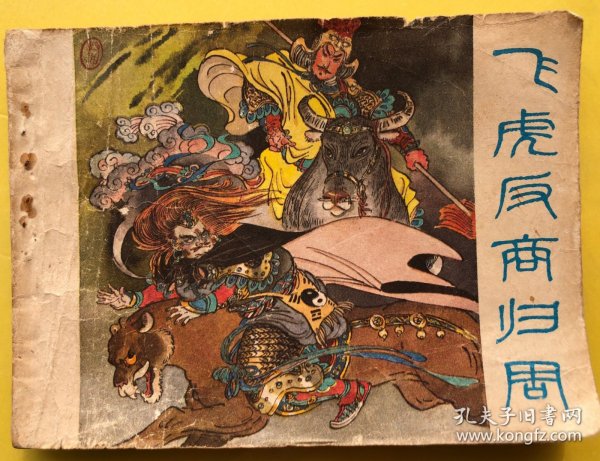 飞虎反商归周
孔夫子旧书网
www.kongfz.com